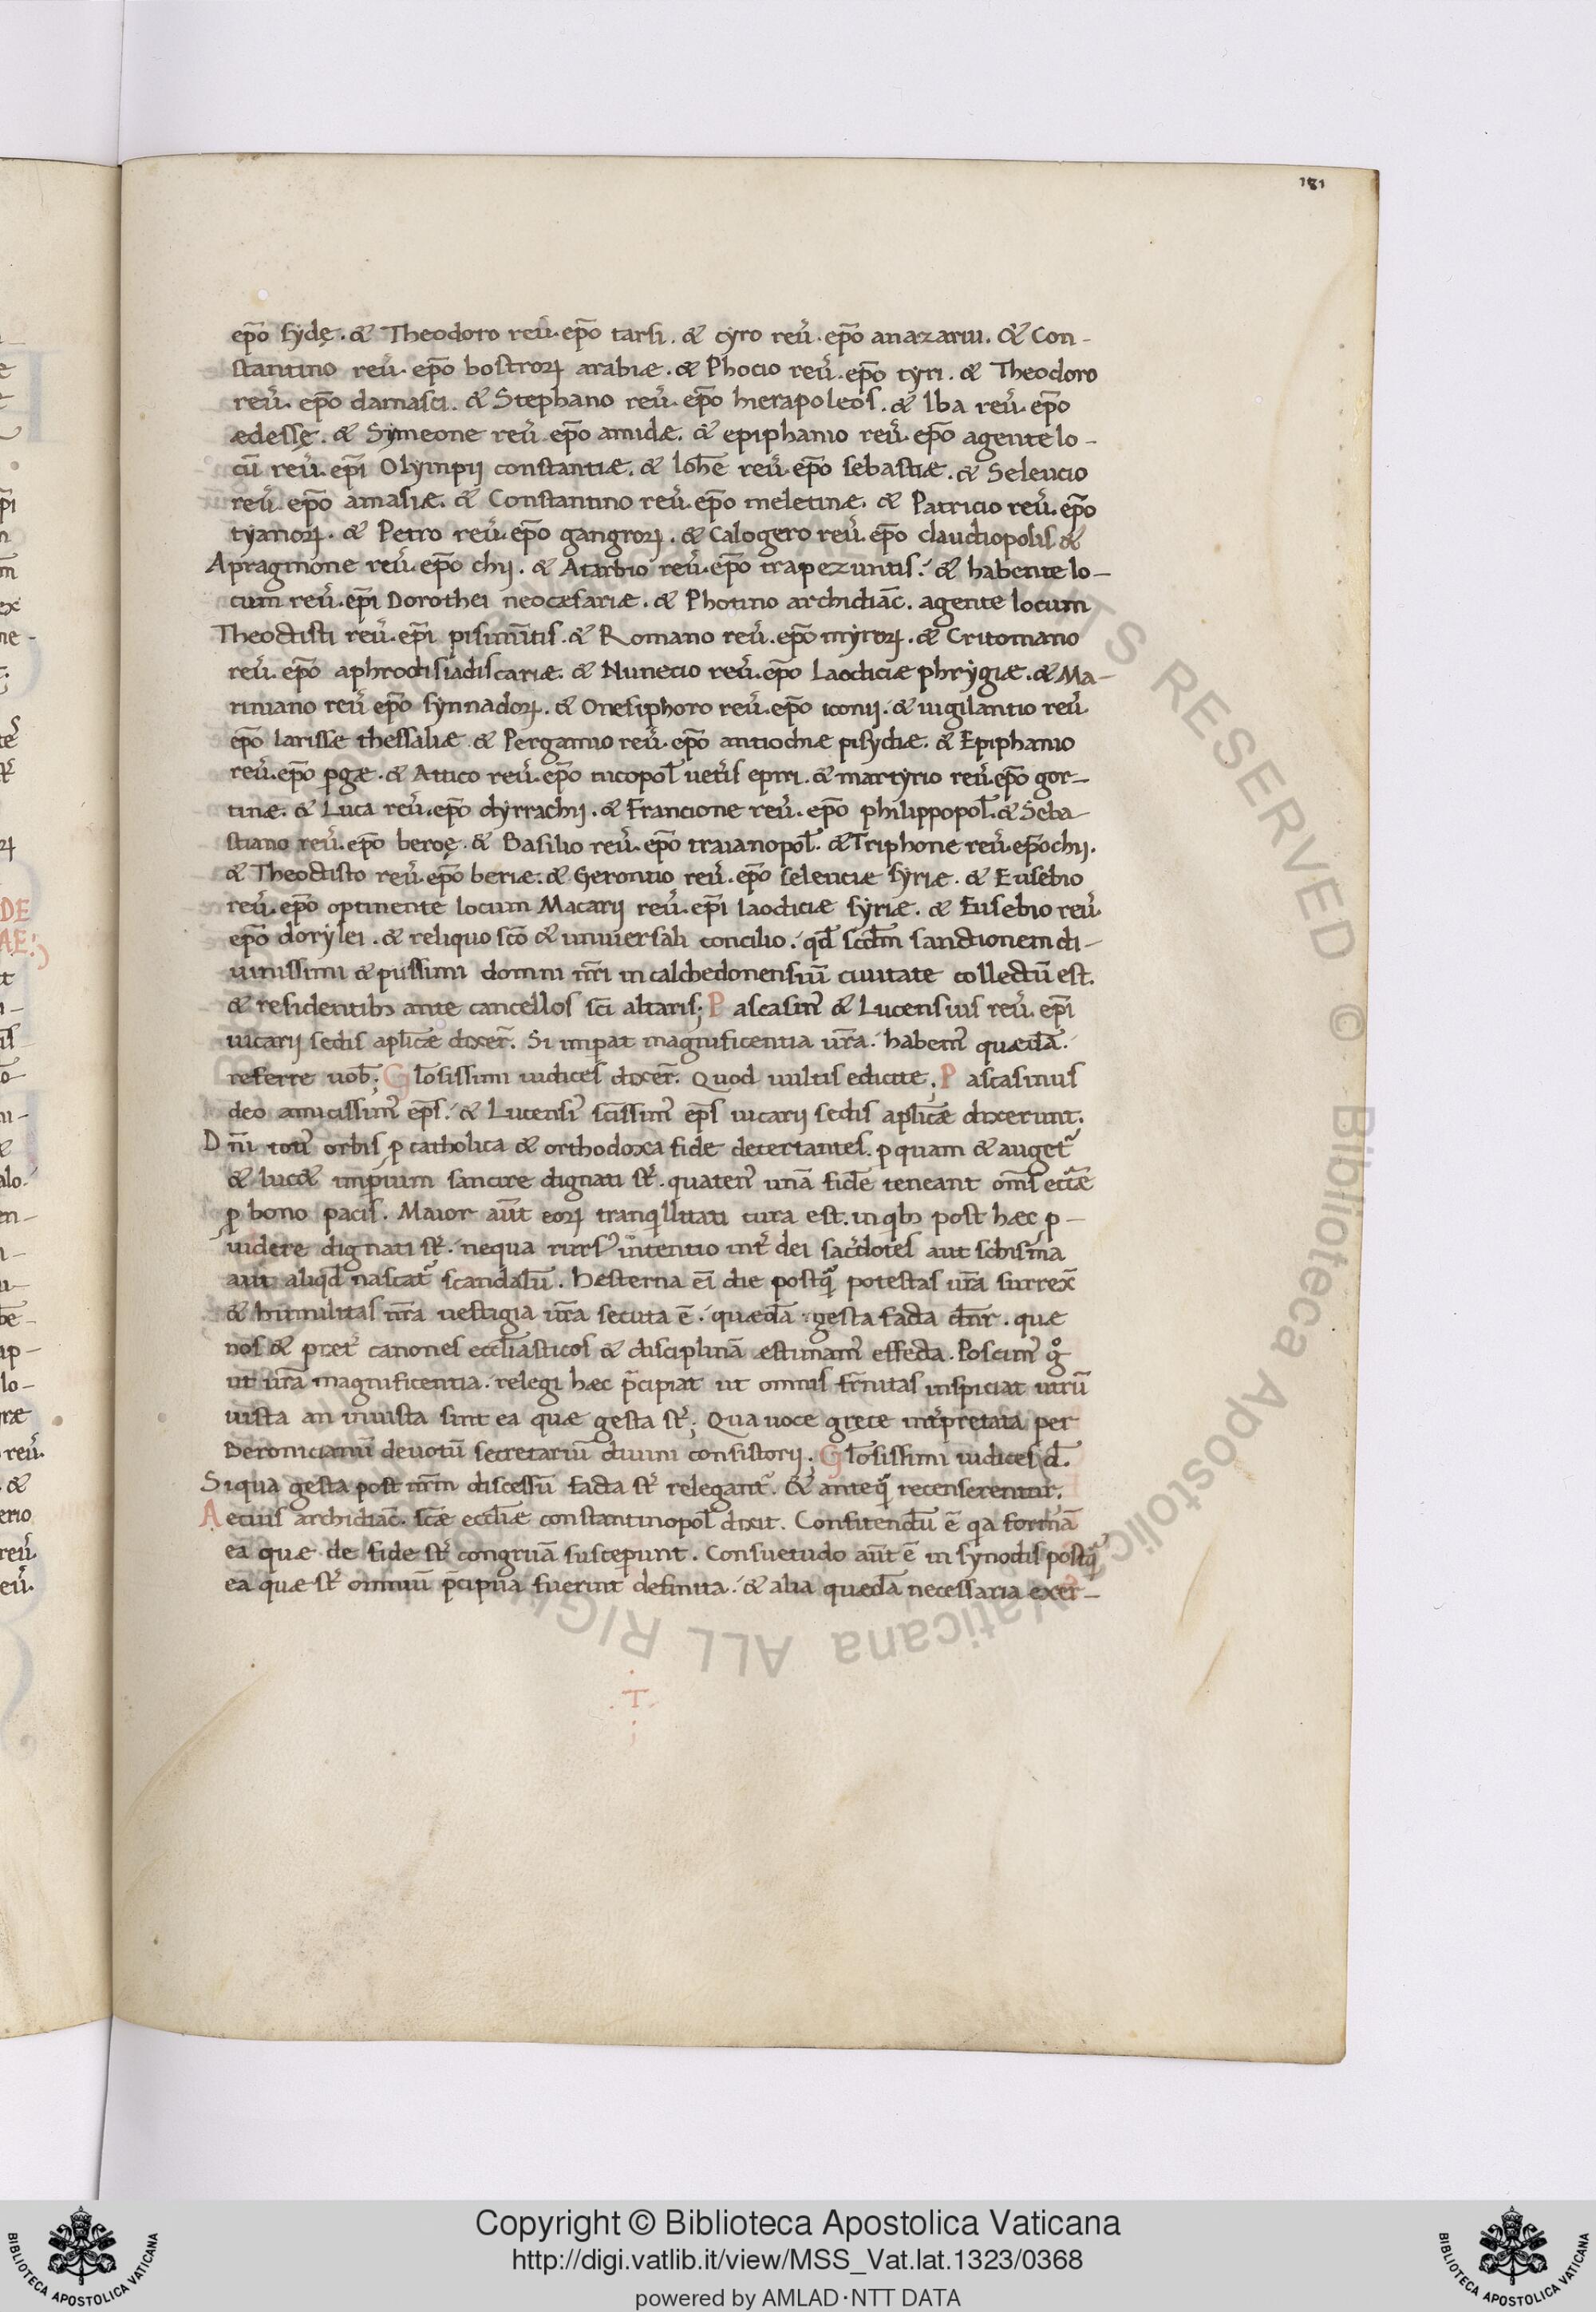 181
ep̄o sydę. & Theodoro reu̓. ep̄o tarsi. & cyro reu̓. ep̄o anazarui. & Con-
stantino reu̓. ep̄o bostroꝝ arabiæ. & Phocio reu̓. ep̄o tyri. & Theodoro
reu̓. ep̄o damasci. & Stephano reu̓. ep̄o hierapoleos. & Iba reu̓. ep̄o
ædessę. & Symeone reu̓. ep̄o amidæ. & epiphanio reu̓. ep̄o agente lo-
cū reu̓. ep̄i Olympij constantiæ. & Ioh̄e reu̓. ep̄o sebastiæ. & Seleucio
reu̓. ep̄o amasiæ. & Constantino reu̓. ep̄o meletinæ. & Patricio reu̓. ep̄o
tyanoꝝ. & Petro reu̓. ep̄o gangroꝝ. & Calogero reu̓. ep̄o claudiopolis &
Apragmone reu̓. ep̄o chij. & Atarbio reu̓. ep̄o trapezuntis. & habente lo-
cum reu̓. ep̄i Dorothei neocæsariæ. & Photino archidiāc. agente locum
Theoctisti reu̓. ep̄i pisinūtis. & Romano reu̓. ep̄o myroꝝ. & Critomano
reu̓. ep̄o aphrodisiadis cariæ. & Nunecio reu̓. ep̄o Laodiciæ phrygiæ. & Ma-
riniano reu̓ ep̄o synnadoꝝ. & Onesiphoro reu̓. ep̄o iconij. & uigilantio reu̓.
ep̄o larissæ thessaliæ & Pergamio reu̓. ep̄o antiochiæ pisydiæ. & Epiphanio
reu̓. ep̄o ꝑgæ. & Attico reu̓. ep̄o nicopol̄ uet̓is epiri. & martyrio reu̓. ep̄o gor-
tinæ. & Luca reu̓. ep̄o dyrrachij. & Francione reu̓. ep̄o philippopol̄. & Seba-
stiano reu̓. ep̄o beroę. & Basilio reu̓. ep̄o traianopol̄. & Triphone reu̓. ep̄o chij.
& Theoctisto reu̓. ep̄o beriæ. & Gerontio reu̓. ep̄o seleuciæ syriæ. & Eusebio
reu̓. ep̄o optinente locum Macarij reu̓. ep̄i laodiciæ syriæ. & Eusebio reu̓.
ep̄o dorylei. & reliquo sc̄o & uniuersali concilio. qd̄ scd̄m sanctionem di-
uinissimi & piissimi domni nr̄i in calchedonensiū ciuitate collectū est.
& residentibꝫ ante cancellos sc̄i altaris; Pascasin᾽ & Lucensius reu̓. ep̄i
uicarij sedis apl̄icæ dixer̄. Si imꝑat magnificentia ur̄a. habem᾽ quædā.
referre uob̄; Gl̄osissimi iudices dixer̄. Quod uultis edicite; Pascasinus
deo amicissim᾽ ep̄s. & Lucensi᾽ sc̄issim᾽ ep̄s uicarij sedis apl̄icæ dixerunt.
Dn̄i toti᾽ orbis ꝓ catholica & orthodoxa fide decertantes. ꝑ quam & auget᾽
& luc& imꝑium sancire dignati st̓. quaten᾽ unā fidē teneant om̄s eccl̄æ
ꝓ bono pacis. Maior aūt eoꝝ tranqillitati cura est. in qibꝫ post hæc ꝓ-
uidere dignati st̓. nequa rurs᾽ intentio int̓ dei sac̓dotes aut schisma
aut aliqd̄ nascat᾽ scandalū. Hesterna eī die postq̄ potestas ur̄a surrex̄
& humilitas nr̄a uestigia ur̄a secuta ē. quædā gesta facta dn̄r. quæ
nos & pręt̓ canones eccl̄iasticos & disciplinā estimam᾽ effecta. Poscim᾽ gͦ
ut ur̄a magnificentia. relegi hæc p̄cipiat ut omnis fr̄nitas inspiciat utrū
iusta an iniusta sint ea quæ gesta st̓; Qua uoce gręce int̓pretata per
Beronicianū deuotū secretariū diuini consistorij; Gl̄osissimi iudices d̄.
Siqua gesta post nr̄m discessū facta st̓ relegant᾽. & anteq̄ recenserentur.
Aetius archidiāc. sc̄æ eccl̄iæ constantinopol̄ dixit. Confitendū ē qa formā
eā quæ de fide st̓ congruā susceꝑunt. Consuetudo aūt ē in synodis postq̄
ea quæ st̓ omniū p̄cipua fuerint definita. & alia quædā necessaria exer-
.T.
Copyright © Biblioteca Apostolica Vaticana
http://digi.vatlib.it/view/MSS_Vat.lat.1323/0368
powered by AMLAD·NTT DATA
BIBLIOTECA APOSTOLICA VATICANA
BIBLIOTECA APOSTOLICA VATICANA